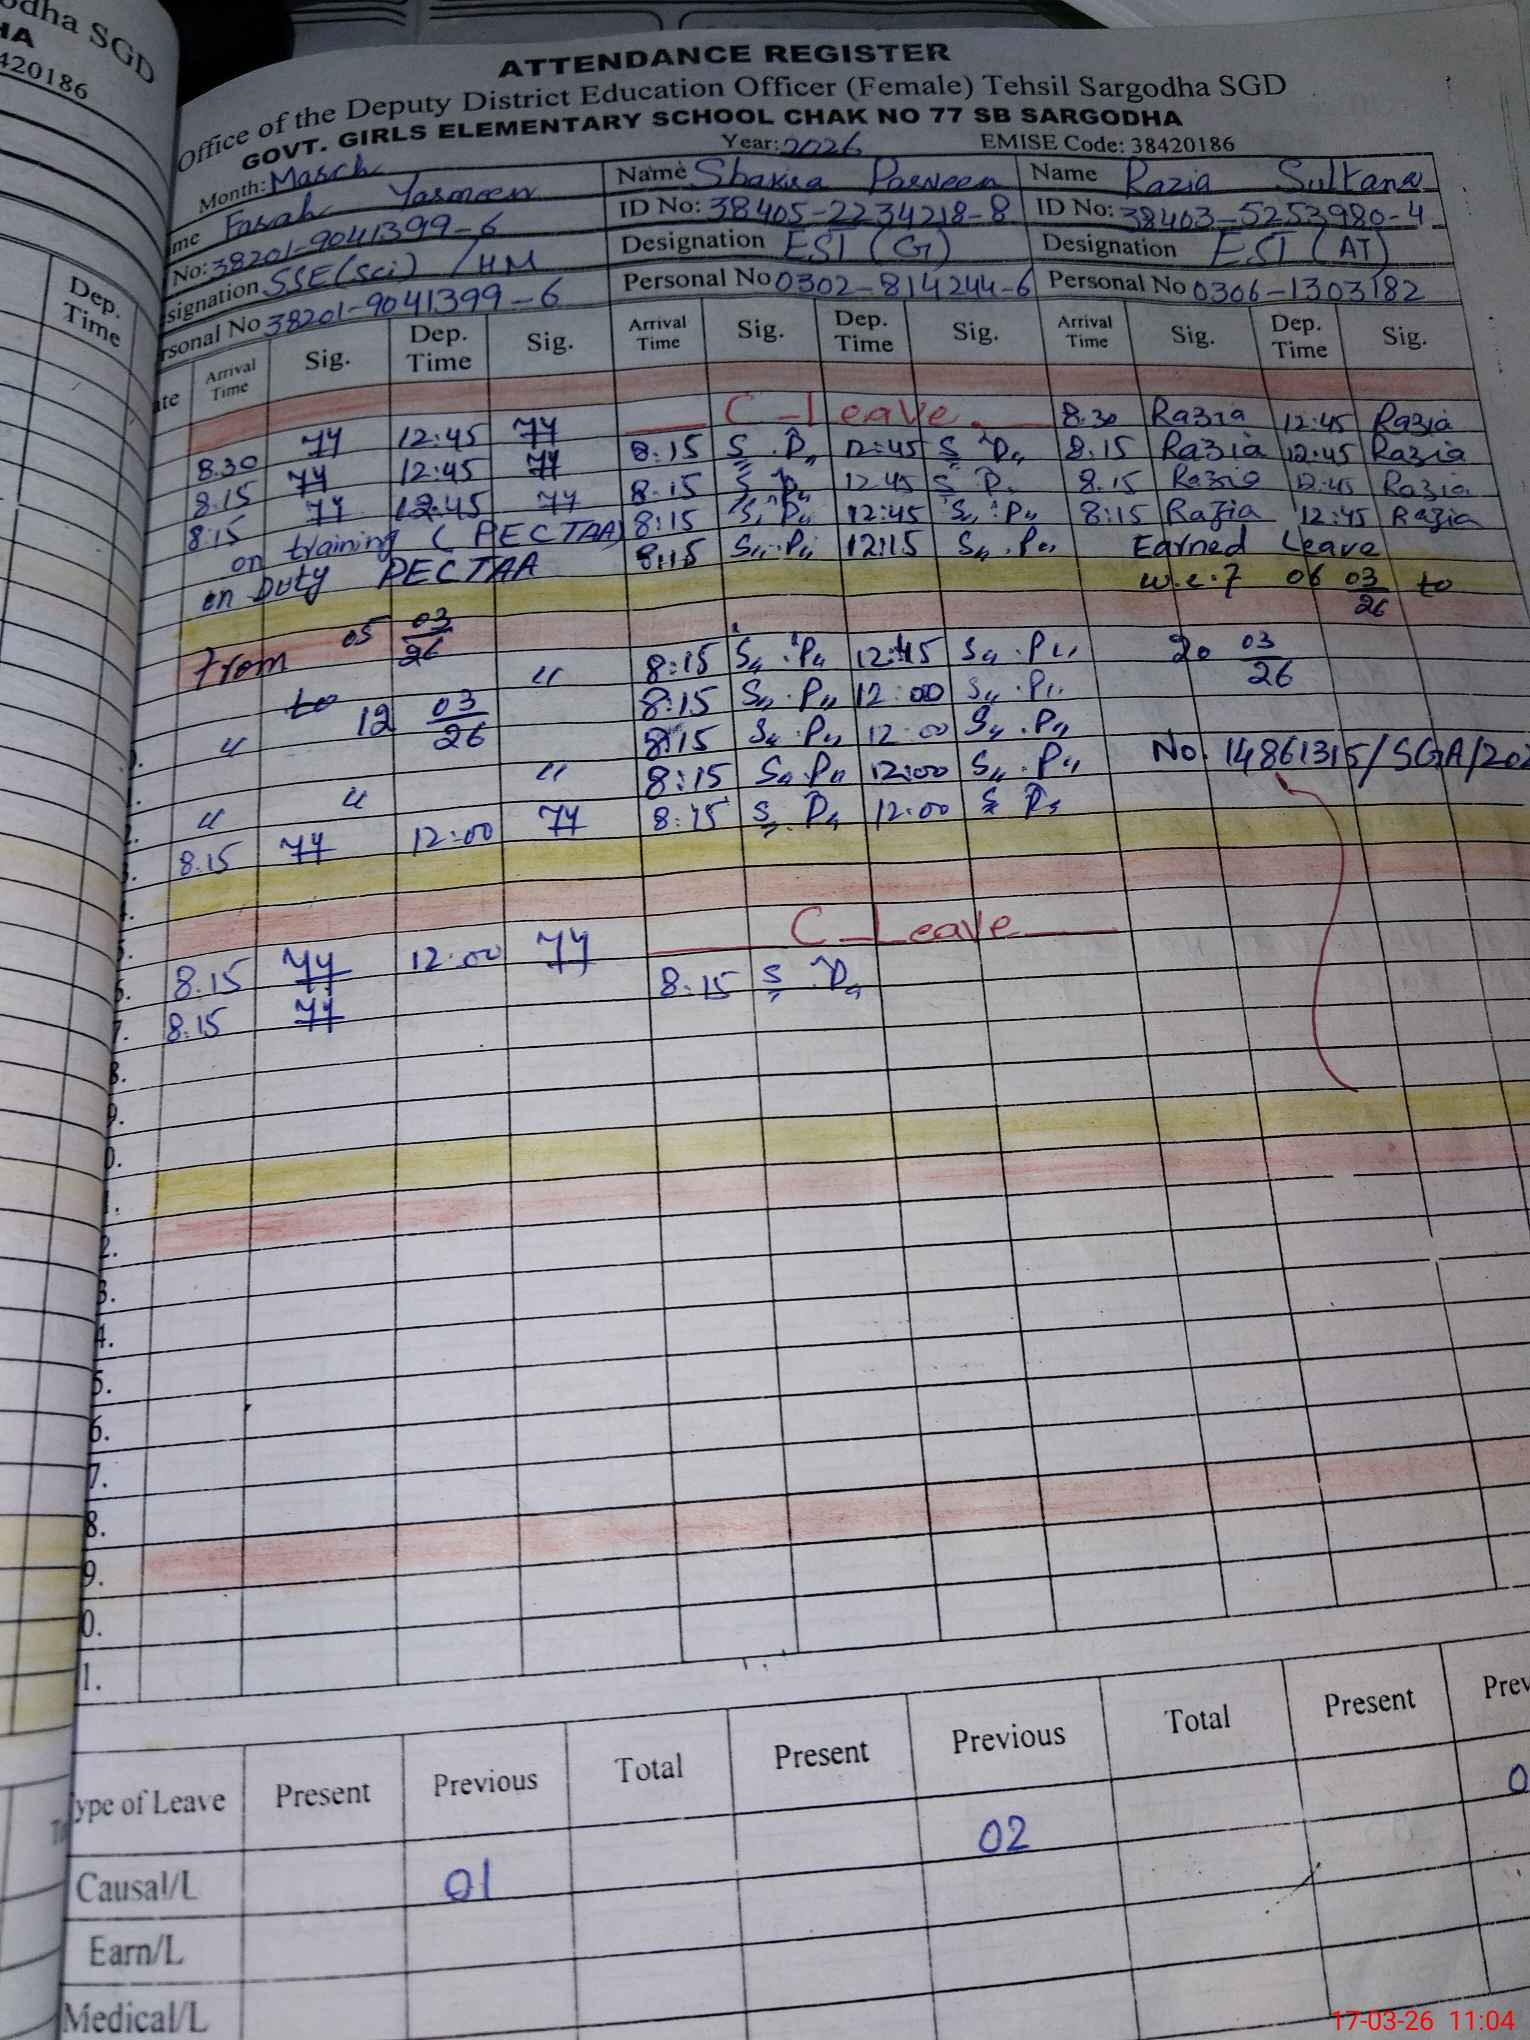 odha SGD
HA
420186
Dep. Time
ATTENDANCE REGISTER
Office of the Deputy District Education Officer (Female) Tehsil Sargodha SGD
GOVT. GIRLS ELEMENTARY SCHOOL CHAK NO 77 SB SARGODHA
Month: March Year: 2026 EMISE Code: 38420186
me Farah Yasmeen Name Shakira Parveen Name Razia Sultana
No: 38201-9041399-6 ID No: 38405-2234218-8 ID No: 38403-5253980-4
signation SSE(Sci) / HM Designation EST (G) Designation EST (AT)
rsonal No 38201-9041399-6 Personal No 0302-814244-6 Personal No 0306-1303182
ate Arrival Time Sig. Dep. Time Sig. Arrival Time Sig. Dep. Time Sig. Arrival Time Sig. Dep. Time Sig.
8.30 12:45 C-Leave 8.30 Razia 12:45 Razia
8.15 12:45 8:15 S.P. 12:45 S.P. 8.15 Razia 12:45 Razia
8:15 12:45 8:15 S.P. 12:45 S.P. 8.15 Razia 12:45 Razia
on training (PECTAA) 8:15 S.P. 12:45 S.P. 8:15 Razia 12:45 Razia
on Duty PECTAA 8:15 S.P. 12:15 S.P. Earned Leave
w.e.f 06 03/26 to
From 05 03/26 " 8:15 S.P. 12:45 S.P. 20 03/26
to 12 03/26 8:15 S.P. 12:00 S.P.
" 8:15 S.P. 12:00 S.P.
" 8:15 S.P. 12:00 S.P. No. 14861315/SGA/202
" "
8.15 12:00 8:15 S.P. 12:00 S.P.
8.15 12:00 C-Leave
8.15 8.15 S.P.
8.
9.
0.
1.
2.
3.
4.
5.
6.
7.
8.
9.
0.
1.
ype of Leave Present Previous Total Present Previous Total Present Prev
Causal/L 01 02 0
Earn/L
Medical/L
17-03-26 11:04